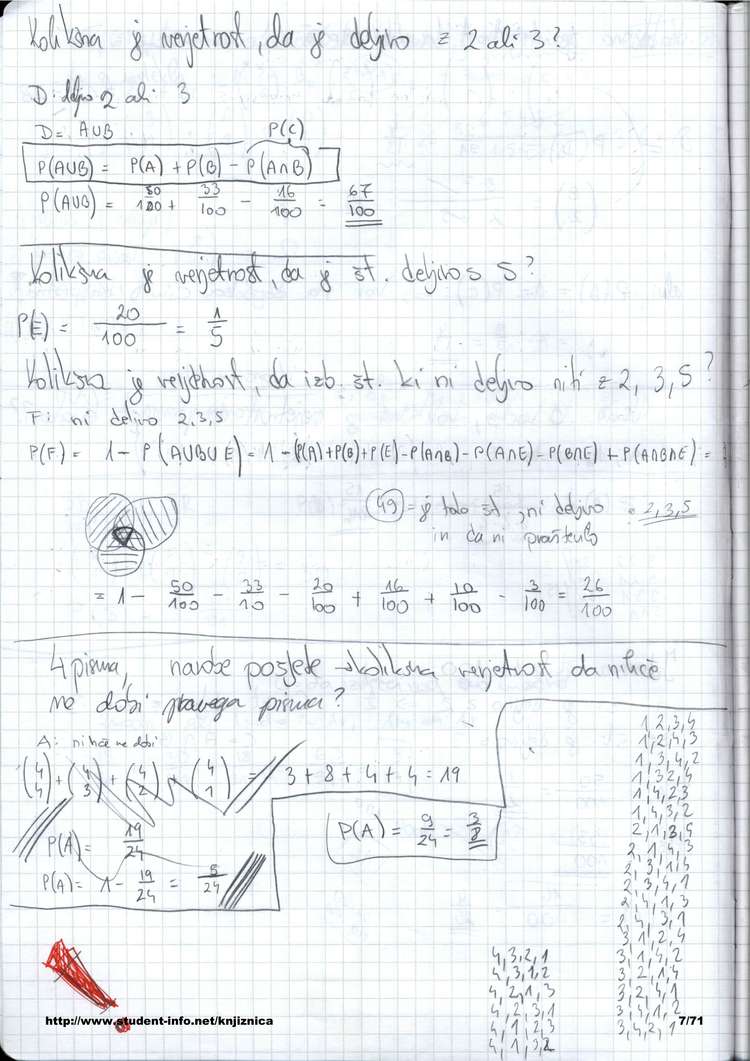 Kolikšna je verjetnost, da je deljivo z 2 ali 3?
D: deljivo 2 ali 3
D = A∪B
P(C)
P(A∪B) = P(A) + P(B) - P(A∩B)
P(A∪B) = 50/100 + 33/100 - 16/100 = 67/100
Kolikšna je verjetnost, da je št. deljivo s 5?
P(E) = 20/100 = 1/5
Kolikšna je verjetnost, da izb. št. ki ni deljivo niti z 2, 3, 5?
F: ni deljivo 2,3,5
P(F) = 1 - P(A∪B∪E) = 1 - (P(A)+P(B)+P(E)-P(A∩B)-P(A∩E)-P(B∩E)+P(A∩B∩E) =
49 = je tako št, ni deljivo z 2,3,5
in da ni praštevilo
= 1 - 50/100 - 33/10 - 20/100 + 16/100 + 10/100 - 3/100 = 26/100
4 pisma, narobe posljete kolikšna verjetnost da nihče
ne dobi pravega pisma?
A: nihče ne dobi
(4 4) + (4 3) + (4 2) + (4 1) = 3 + 8 + 4 + 4 = 19
P(A) = 19/24
P(A) = 1 - 19/24 = 5/24
P(A) = 9/24 = 3/8
1,2,3,4
1,2,4,3
1,3,4,2
1,3,2,4
1,4,2,3
1,4,3,2
2,1,3,4
2,1,4,3
2,3,1,4
2,3,4,1
2,4,1,3
2,4,3,1
3,1,2,4
3,1,4,2
3,2,1,4
3,2,4,1
3,4,1,2
3,4,2,1
4,3,2,1
4,3,1,2
4,2,1,3
4,2,3,1
4,1,2,3
4,1,3,2
http://www.student-info.net/knjiznica
7/71